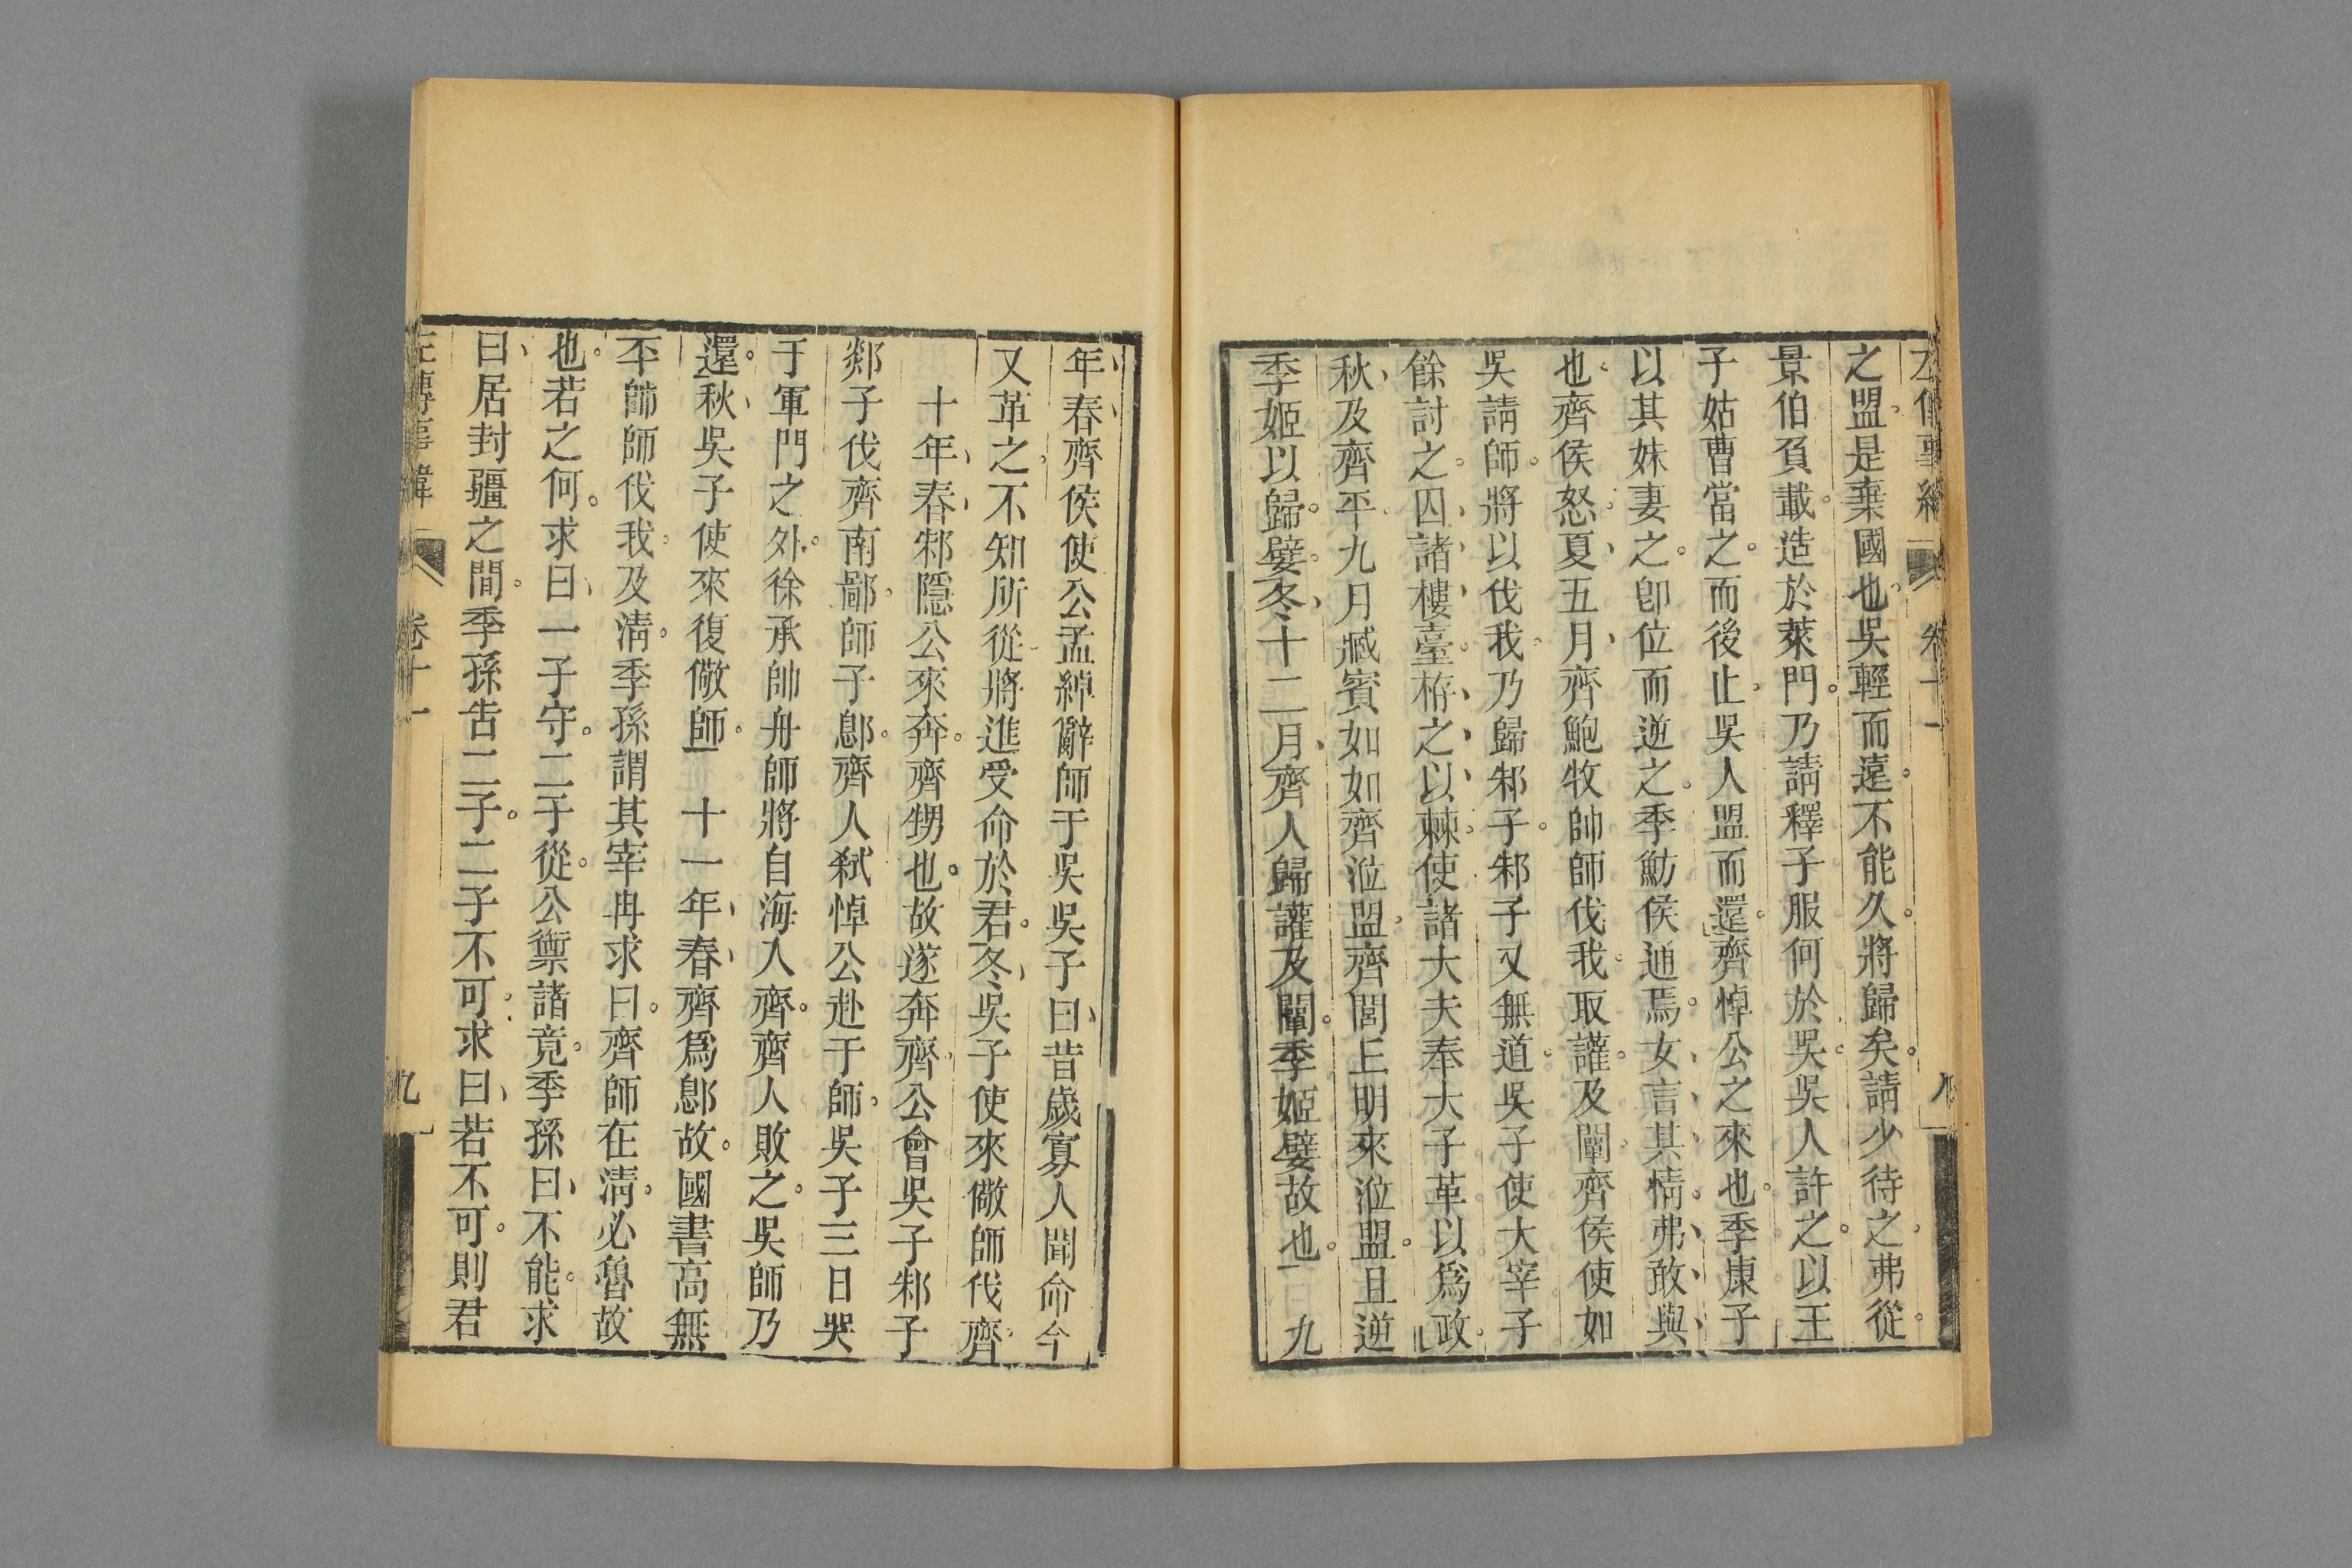 左傳事緯 卷十一 八
之盟是棄國也吳輕而遠不能久將歸矣請少待之弗從
景伯負載造於萊門乃請釋子服何於吳吳人許之以王
子姑曹當之而後止吳人盟而還齊悼公之來也季康子
以其妹妻之卽位而逆之季魴侯通焉女言其情弗敢與
也齊侯怒夏五月齊鮑牧帥師伐我取讙及闡齊侯使如
吳請師將以伐我乃歸邾子邾子又無道吳子使大宰子
餘討之囚諸樓臺栫之以棘使諸大夫奉大子革以爲政
秋及齊平九月臧賓如如齊涖盟齊閭丘明來涖盟且逆
季姬以歸嬖冬十二月齊人歸讙及闡季姬嬖故也 九
年春齊侯使公孟綽辭師于吳吳子曰昔歲寡人聞命今
又革之不知所從將進受命於君冬吳子使來儆師伐齊
十年春邾隱公來奔齊甥也故遂奔齊公會吳子邾子
郯子伐齊南鄙師于鄎齊人弒悼公赴于師吳子三日哭
于軍門之外徐承帥舟師將自海入齊齊人敗之吳師乃
還秋吳子使來復儆師 十一年春齊爲鄎故國書高無
㔻帥師伐我及淸季孫謂其宰冉求曰齊師在淸必魯故
也若之何求曰一子守二子從公禦諸竟季孫曰不能求
曰居封疆之間季孫告二子二子不可求曰若不可則君
左傳事緯 卷十一 九